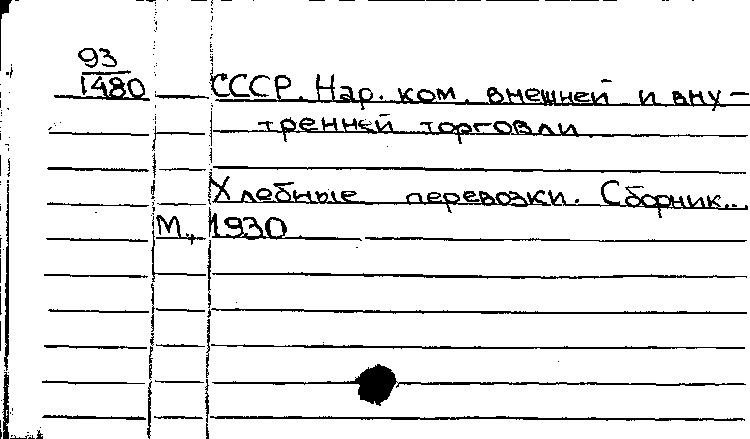 93
1480
СССР. Нар. ком. внешней и вну-
тренней торговли.
Хлебные перевозки. Сборник...
М., 1930